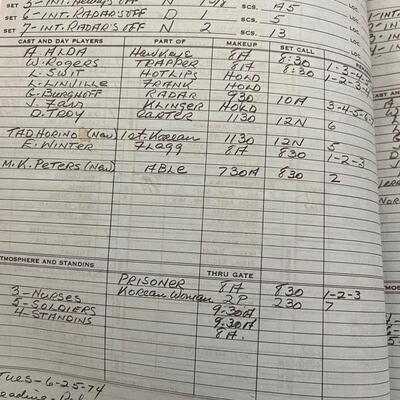 SET 5-INT. N 1/8 SCS. A5 LOC.
SET 6-INT. RADAR'S OFF D 1 SCS. 5 LOC.
SET 7-INT. RADAR'S OFF N 2 SCS. 13 LOC.
CAST AND DAY PLAYERS PART OF MAKEUP SET CALL
A ALDA HAWKEYE 8A 8:30
W. ROGERS TRAPPER 8A 8:30 1-2-3-4
L. SWIT HOTLIPS HOLD
L. LINVILLE FRANK HOLD
G. BURGHOFF RADAR 930 10A 3-4-5-6-7
J. FARR KLINGER HOLD
D. TROY CARTER 1130 12N 6
TAD HORINO (NEW) 1st. KOREAN 1130 12N 5
E. WINTER FLAGG 8A 830 1-2-3
M.K. PETERS (NEW) ABLE 730A 830 2
ATMOSPHERE AND STANDINS THRU GATE
PRISONER 8A 830 1-2-3
3-NURSES KOREAN WOMAN 2P 230 7
5-SOLDIERS 9:30A
4-STANDINS 9:30A
8A.
TUES-6-25-74